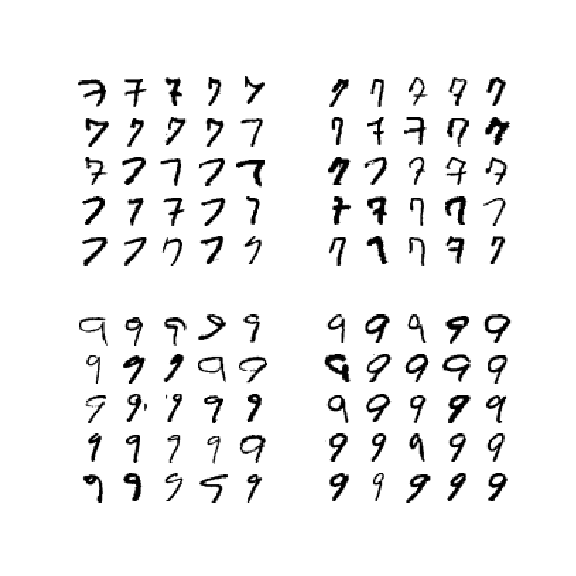 7 7 7 7 7 7 7 7 7 7
7 7 7 7 7 7 7 7 7 7
7 7 7 7 7 7 7 7 7 7
7 7 7 7 7 7 7 7 7 7
7 7 7 7 7 7 7 7 7 7
9 9 9 9 9 9 9 9 9 9
9 9 9 9 9 9 9 9 9 9
9 9 9 9 9 9 9 9 9 9
9 9 9 9 9 9 9 9 9 9
9 9 9 9 9 9 9 9 9 9